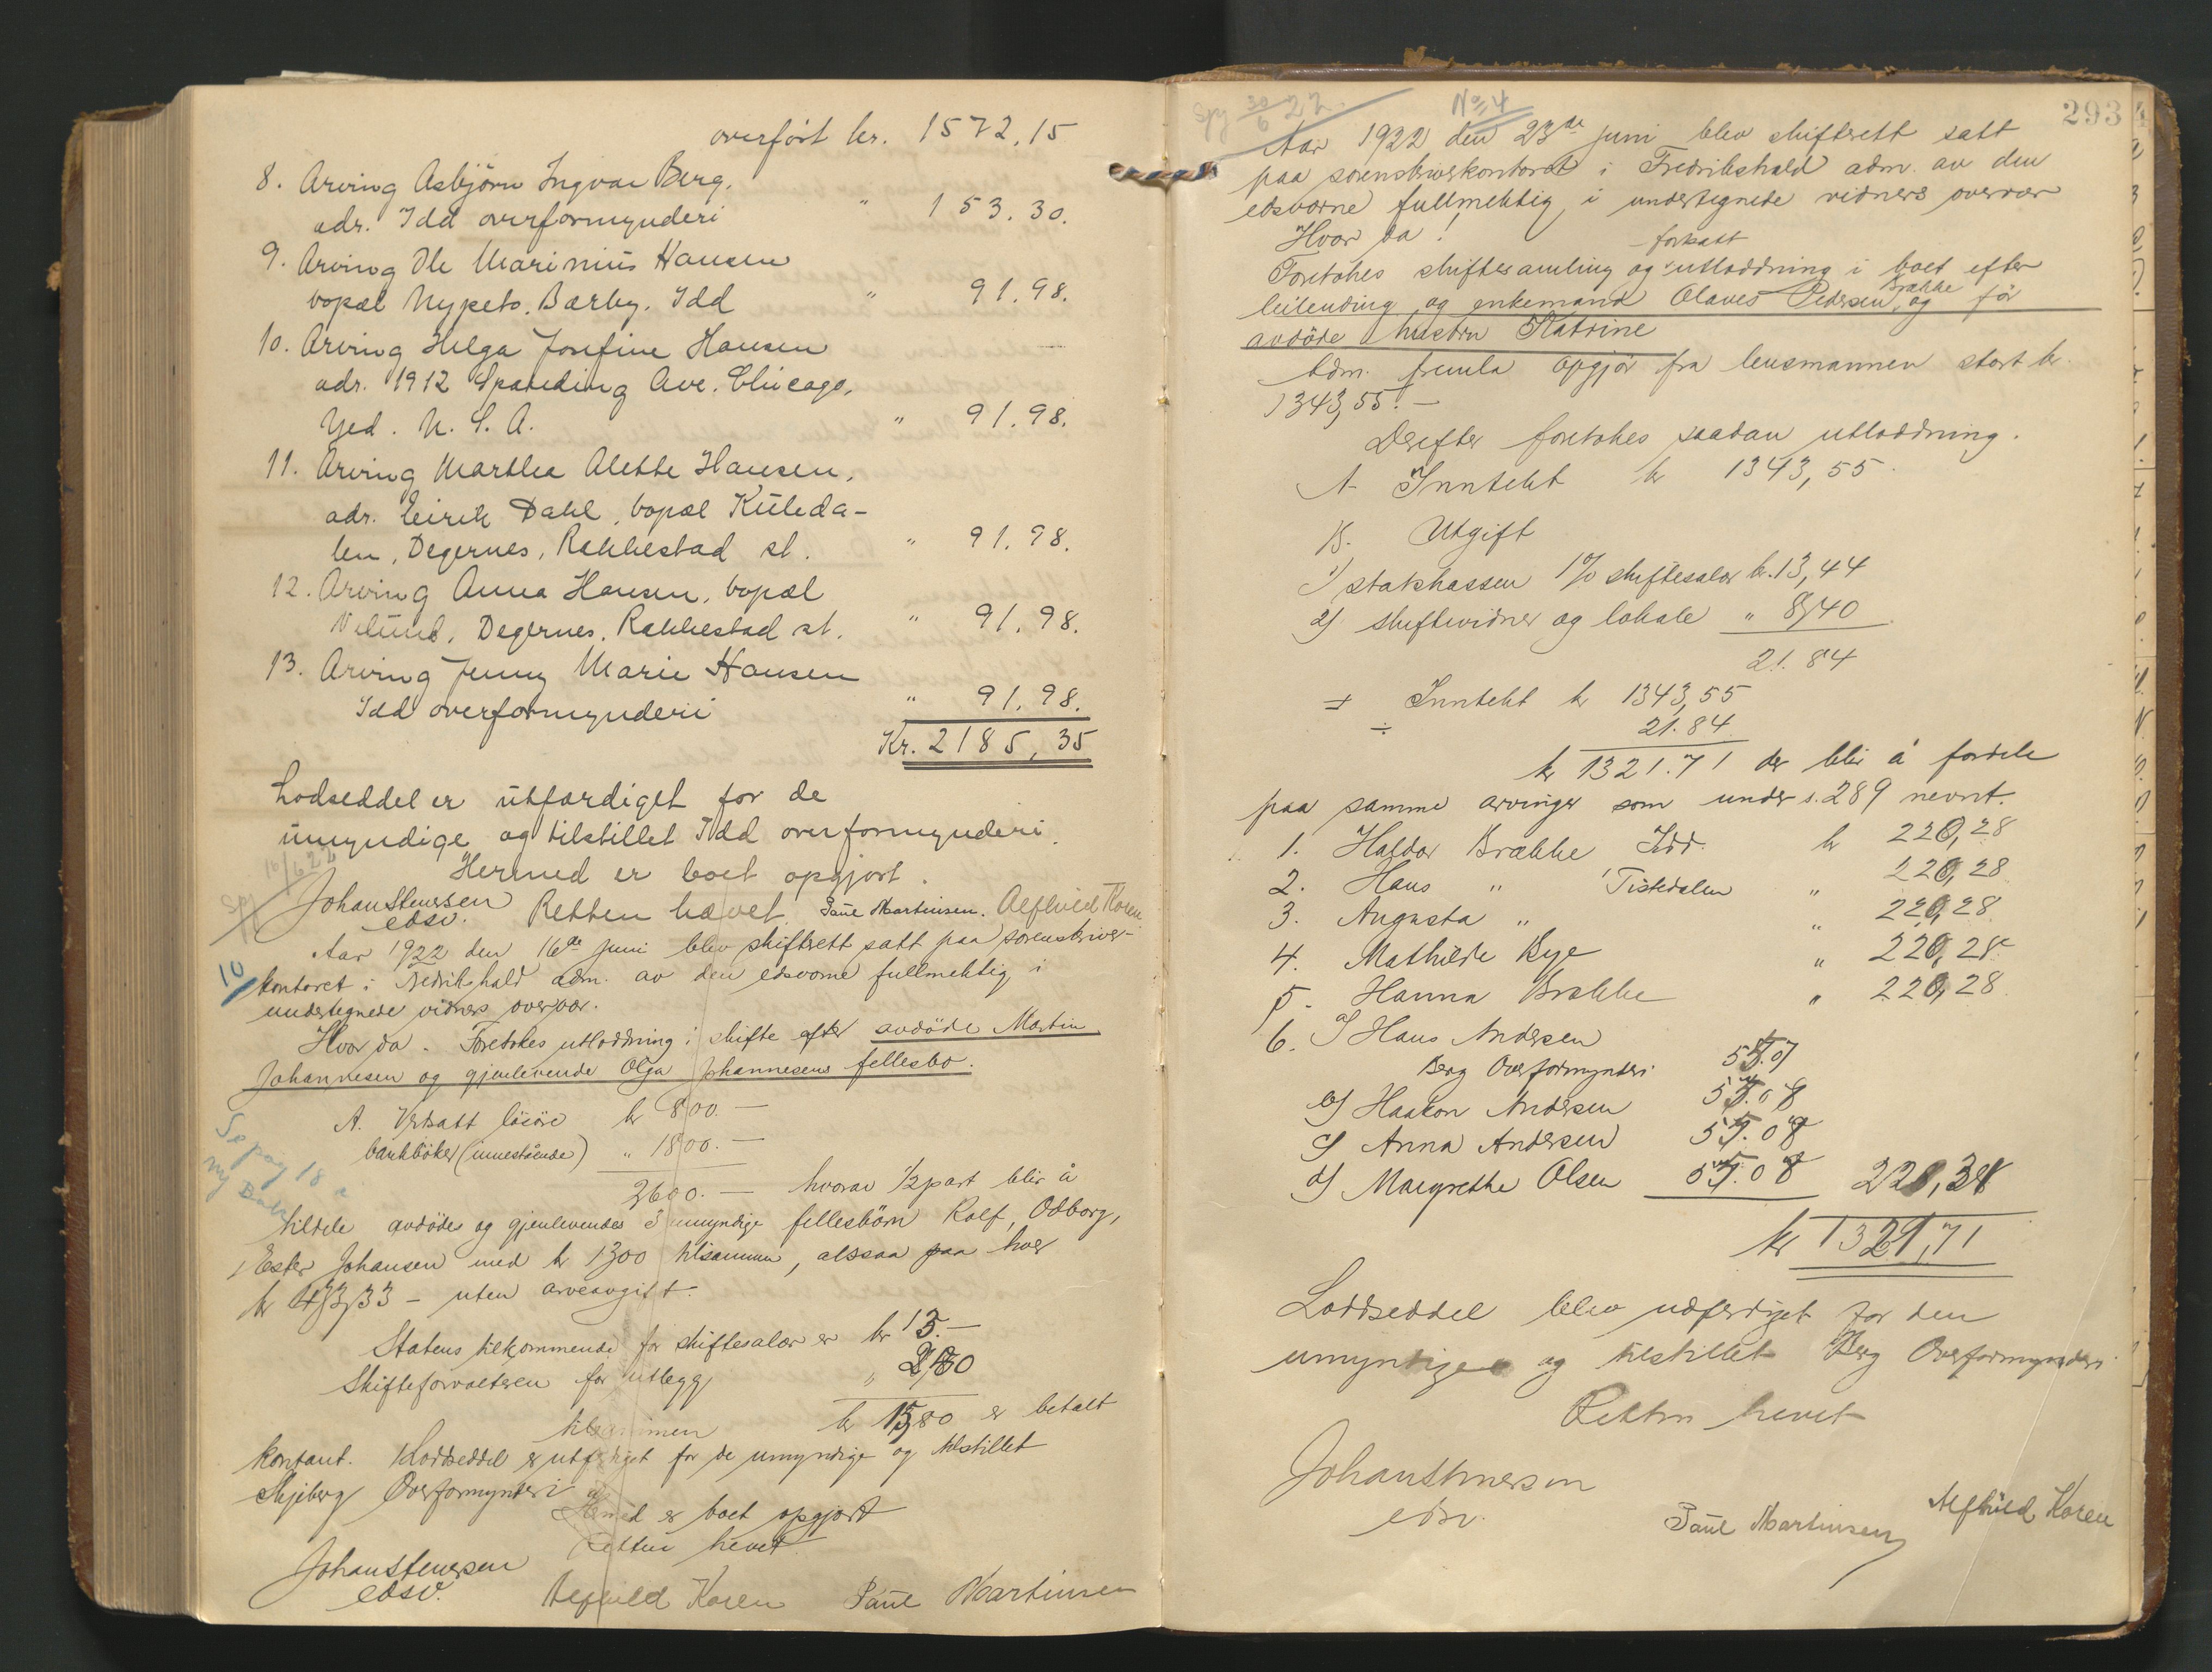 overført kr. 1572.15
8. Arving Asbjørn Ingvar Berg,
adr. Idd overformynderi " 153.30.
9. Arving Ole Marinius Hansen
bopæl Nypeto. Bærby. Idd " 91.98.
10. Arving Helga Josefine Hansen
adr. 1912 Spaulding Ave. Chicago,
U. S. A. " 91.98.
11. Arving Marthea Alette Hansen,
adr. Eirik Dahl, bopæl Kuleda-
len, Degernes, Rakkestad st. " 91.98.
12. Arving Anna Hansen, bopæl
Degernes, Rakkestad st. " 91.98.
13. Arving Jenny Marie Hansen
Idd overformynderi " 91.98.
Kr. 2185,35
Lodseddel er utfærdiget for de
umyndige og tilstillet Idd overformynderi.
10/6 22
Hermed er boet opgjort.
Johan Stenersen
edsv. Retten hævet. Paul Martinsen. Alfhild Koren
Aar 1922 den 16de juni blev skifterett satt paa sorenskriver-
10
kontoret i Fredrikshald adm. av den edsvorne fullmektig i
undertegnede vidners overvær.
Hvor da. Foretokes utloddning i skifte efter avdøde Martin
Johannesen og gjenlevende Olga Johannesens fellesbo.
A. Verdsatt løsøre kr 800.—
bankbøker (innestående) " 1800.—
2600.— hvorav 1/2 part blir å
tildele avdødes og gjenlevendes 3 umyndige fellesbørn Rolf, Odborg,
Ester Johansen med kr 1300 tilsammen, altsaa paa hver
kr 433,33 — uten arveavgift.
Statens tilkommende for skiftesalær er kr 13.—
Skifteforvalteren for utlegg " 2,80
tilsammen kr 15,80 er betalt
kontant. Loddseddel er utferdiget for de umyndige og tilstillet
Skjeberg Overformynderi
Hermed er boet opgjort
Retten hevet.
Johan Stenersen
edsv. Alfhild Koren Paul Martinsen
293
30/6 22. No 4
Aar 1922 den 23de juni blev skifterett satt
paa sorenskriverkontoret i Fredrikshald adm. av den
edsvorne fullmektig i undertegnede vidners overvær
Hvor da!
Foretokes skiftesamling og utloddning i boet efter
leilending og enkemand Olaves Pedersen Brække og før
avdøde hustru Katrine
Adm. fremla opgjør fra lensmannen stort kr.
1343,55.—
Derefter foretokes saadan utloddning.
A. Inntekt kr 1343,55.
B. Utgift
1) statskassen 1% skiftesalær kr. 13,44
2) skiftevidner og lokale " 8,40
21.84
Inntekt kr 1343,55
÷ 21.84
kr 1321.71 der blir å fordele
paa samme arvinger som under s. 289 nevnt.
1. Haldor Brække Idd. kr 220,28
2. Hans " Tistedalen " 220,28
3. Augusta " " 220,28
4. Mathilde Bye " 220,28
5. Hanna Brække " 220,28
6. a) Hans Andersen
Berg Overformynderi 55.07
b) Haakon Andersen 55.08
c) Anna Andersen 55.08
d) Margrethe Olsen 55.08 220,31
kr 1321,71
Loddseddel blev udferdiget for den
umyndige og tilstillet Berg Overformynderi
Retten hevet
Johan Stenersen
edsv.
Paul Martinsen Alfhild Koren